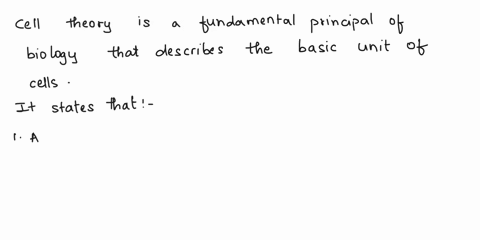 Cell theory is a fundamental principal of
biology that describes the basic unit of
cells.
It states that:-
1. A